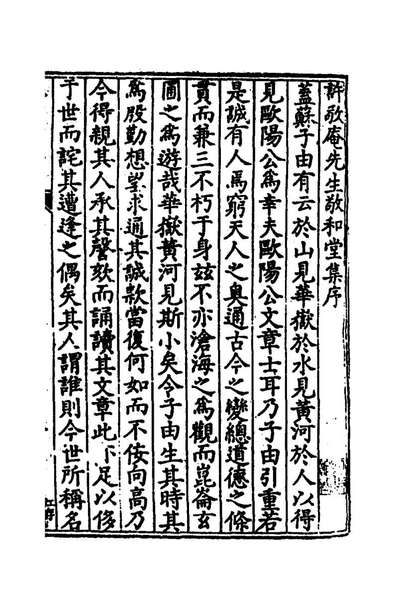 許敬庵先生敬和堂集序
蓋蘇子由有云於山見華嶽於水見黃河於人以得
見歐陽公為幸夫歐陽公文章士耳乃子由引重若
是誠有人焉窮天人之奧通古今之變總道德之條
貫而兼三不朽于身茲不亦滄海之為觀而崑崙玄
圃之為遊哉華嶽黃河見斯小矣今子由生其時其
為殷勤想望求通其誠款當復何如而不佞向高乃
今得親其人承其謦欬而誦讀其文章此下足以侈
于世而詫其遭逢之偶矣其人謂誰則今世所稱名